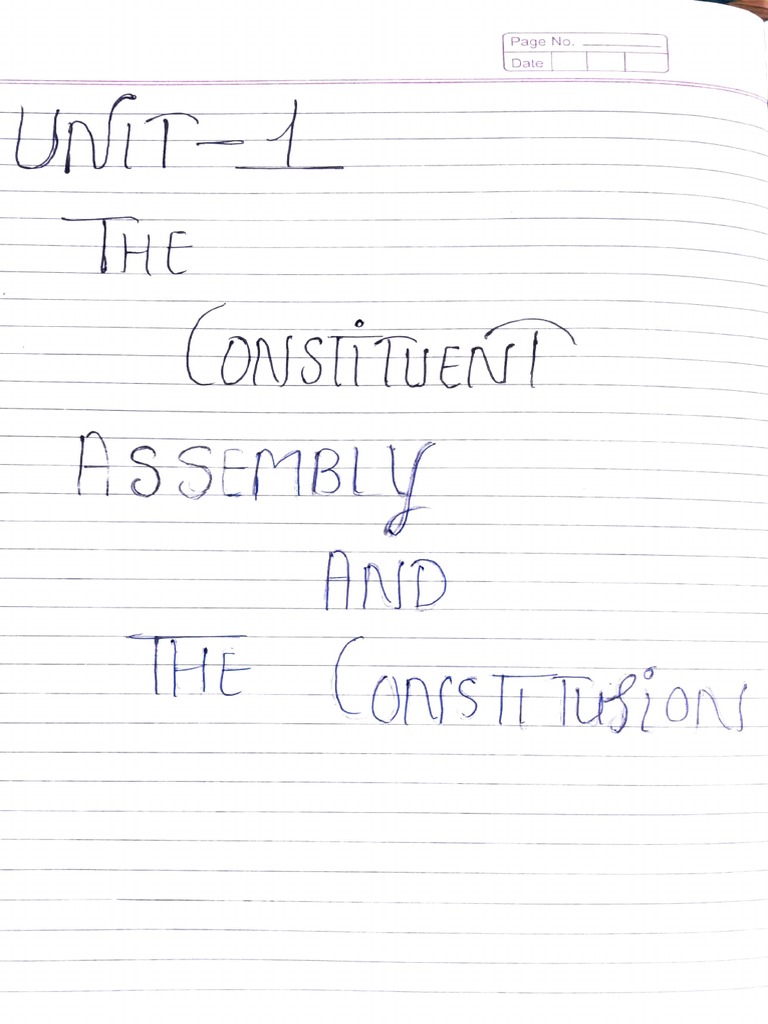 Page No.
Date
UNIT-1
THE
CONSTITUENT
ASSEMBLY
AND
THE CONSTITUSION